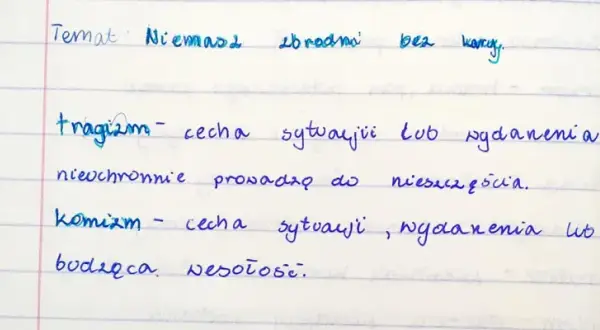 Temat: Niemasz zbrodni bez kary.
tragizm - cecha sytuacjii lub wydarzenia
nieuchronnie prowadzą do nieszczęścia.
komizm - cecha sytuacji, wydarzenia lub
budząca wesołość.